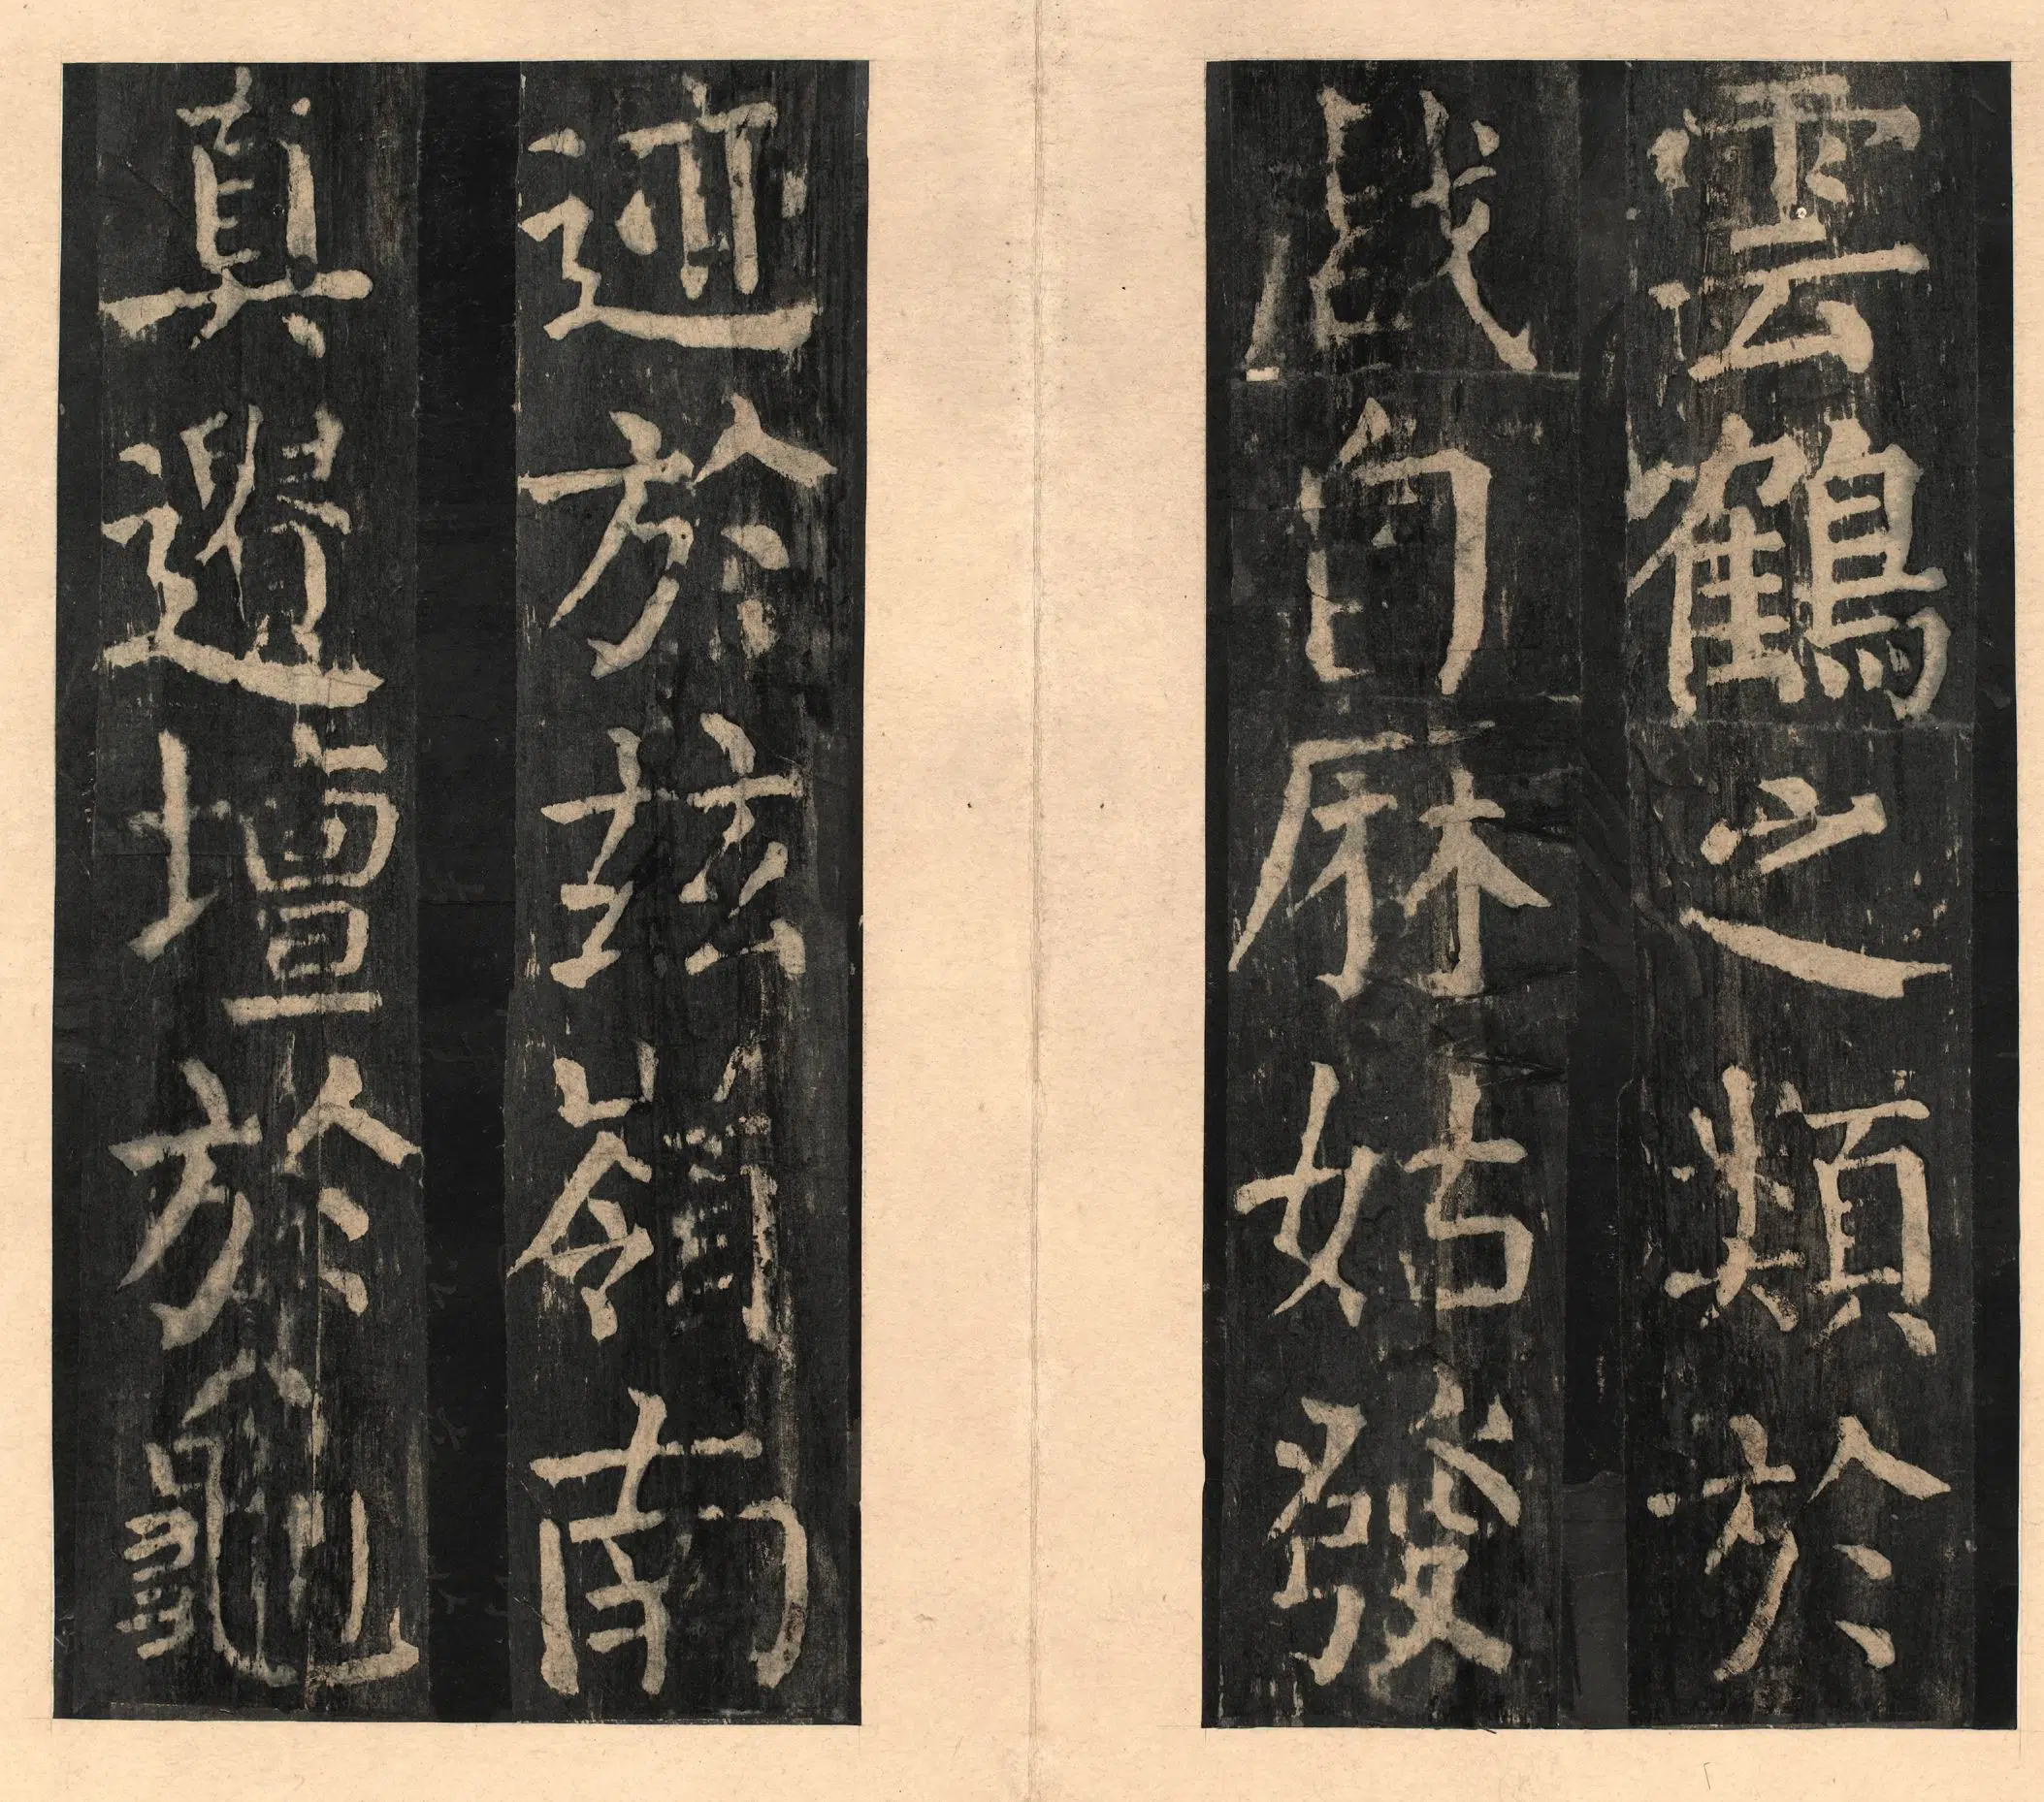 雲鶴之類於
戲自麻姑發
迹於茲嶺南
真遺壇於龜